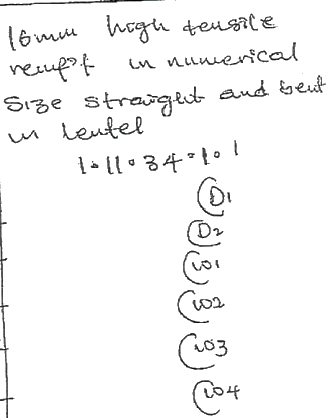 16mm high tensile
reinf't in numerical
size straight and bent
in lentel
1.11.34.10.1
D1
D2
W1
W2
W3
W4